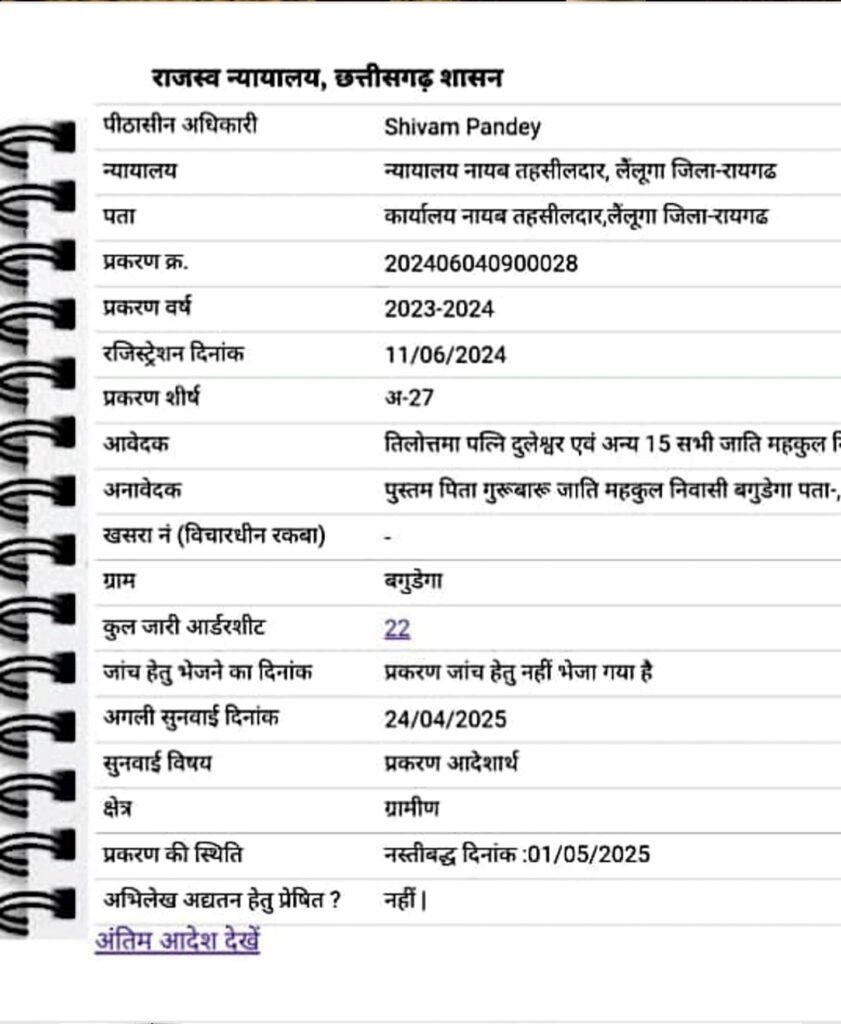 राजस्व न्यायालय, छत्तीसगढ़ शासन
पीठासीन अधिकारी Shivam Pandey
न्यायालय न्यायालय नायब तहसीलदार, लैंलूगा जिला-रायगढ
पता कार्यालय नायब तहसीलदार,लैंलूगा जिला-रायगढ
प्रकरण क्र. 202406040900028
प्रकरण वर्ष 2023-2024
रजिस्ट्रेशन दिनांक 11/06/2024
प्रकरण शीर्ष अ-27
आवेदक तिलोत्तमा पत्नि दुलेश्वर एवं अन्य 15 सभी जाति महकुल
अनावेदक पुस्तम पिता गुरूबारू जाति महकुल निवासी बगुडेगा पता-,
खसरा नं (विचारधीन रकबा) -
ग्राम बगुडेगा
कुल जारी आर्डरशीट 22
जांच हेतु भेजने का दिनांक प्रकरण जांच हेतु नहीं भेजा गया है
अगली सुनवाई दिनांक 24/04/2025
सुनवाई विषय प्रकरण आदेशार्थ
क्षेत्र ग्रामीण
प्रकरण की स्थिति नस्तीबद्ध दिनांक :01/05/2025
अभिलेख अद्यतन हेतु प्रेषित ? नहीं |
अंतिम आदेश देखें